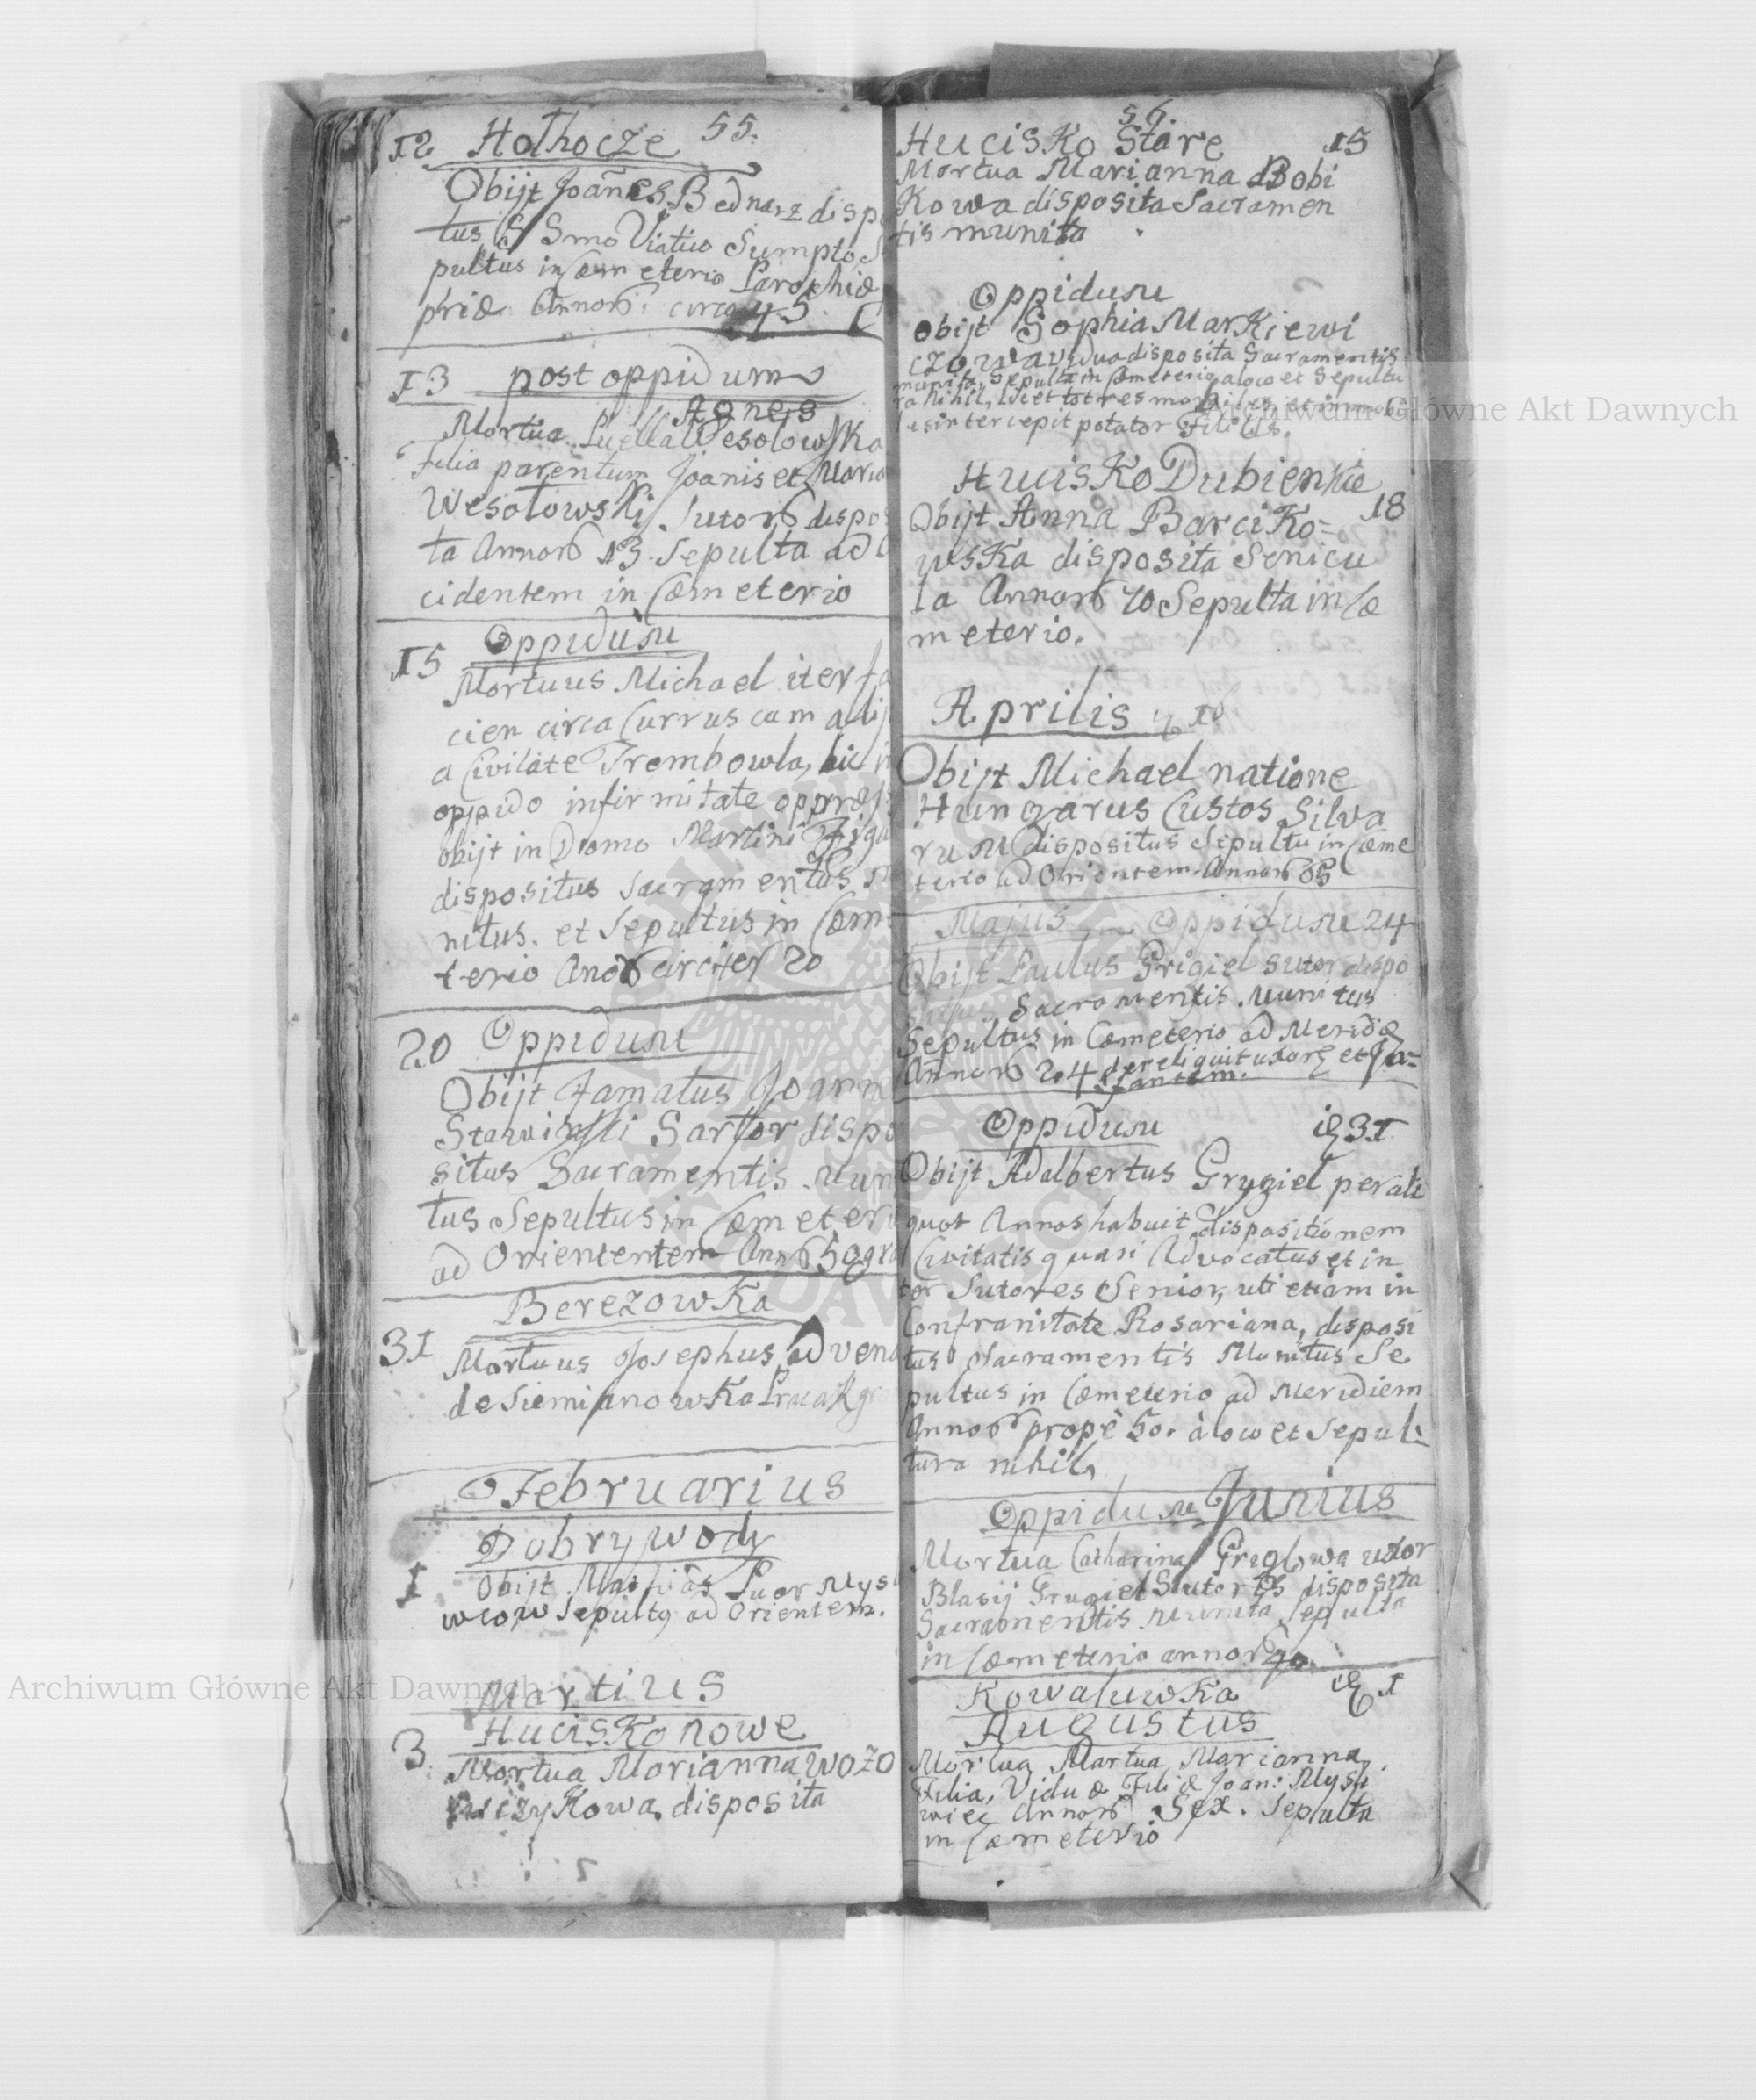 12 Hołhocze 55.
Obijt Joañes Bednarz dispo
tus SSmo Viatico Sumpto S
pultus in Cæmeterio Parochiæ
phiæ Annoȓ: circa 45.
13 post oppidum
Agnes
Mortua Puella Wesolowska
Filia parentum Joanis et Maria
Wesołowski Sutoȓ dispo
ta Annoȓ 13. Sepulta ad
cidentem in Cæmeterio
15 Oppidum
Mortuus Michael iter fa
cien circa Currus cum alij
a Civitate Trembowla, hic in
oppido infirmitate oppræs
obijt in Domo Martini Figu
dispositus Sacramentis
nitus. et Sepultus in Cæme
terio Anoȓ Circiter 20
20 Oppidum
Obijt Famatus Joann
Sartor dispo
situs Sacramentis Muni
tus Sepultus in Cæmeteri
ad Oriententem Annȓ 50
Berezowka
31 Mortuus Josephus adven
de Siemianowka
Februarius
Dobrywody
1 Obijt Mathias Puer Mysl
wcow Sepultq ad Orientem.
Martius
Hucisko nowe
3. Mortua Marianna Wozo
wczykowa disposita
56.
Hucisko Stare 15
Mortua Marianna Bobi
kowa disposita Sacramen
tis munita
Oppidum
obijt Sophia Markiewi
czowa vidua disposita Sacramentis
munita, Sepulta in Cæmeterio, a loco et Sepultu
ra Nihil, licet tot res mobiles et immobi
es intercepit potator Filius.
Hucisko Dubienkie
18
Obijt Anna Barciko=
wska disposita Senicu
la Annoȓ 70 Sepulta in Cæ
meterio.
Aprilis
Obijt Michael natione
Hungarus Custos Silva
rum dispositus Sepultu in Cæme
terio ad Orientem Annoȓ 65
Majus Oppidum 24
Obijt Paulus Grigiel sutor dispo
situs Sacramentis Munitus
Sepultus in Cæmeterio ad Meridiē
Annoȓ 24 dereliquit uxorē et In=
fantem.
Oppidum 31
Obijt Adalbertus Grygiel per ali
quot Annos habuit dispositionem
Civitatis quasi Advocatus et in
ter Sutores Senior, uti etiam in
Confranitate Rosariana, disposi
tus Sacramentis Munitus Se
pultus in Cæmeterio ad Meridiem
Annoȓ propè 50. à loco et Sepul
tura nihil
Oppidum Junius
Mortua Catharina Griglowa uxor
Blasij Grugiel Sutoris disposita
Sacramentis Munita Sepulta
in Cæmeterio annoȓ
Kowaluwka 1
Augustus
Mortua Martua Marianna
Filia, Viduæ Filiæ Joan: Mysli
wiec Annoȓ Sex. Sepulta
in Cæmeterio
Archiwum Główne Akt Dawnych
Archiwum Główne Akt Dawnych